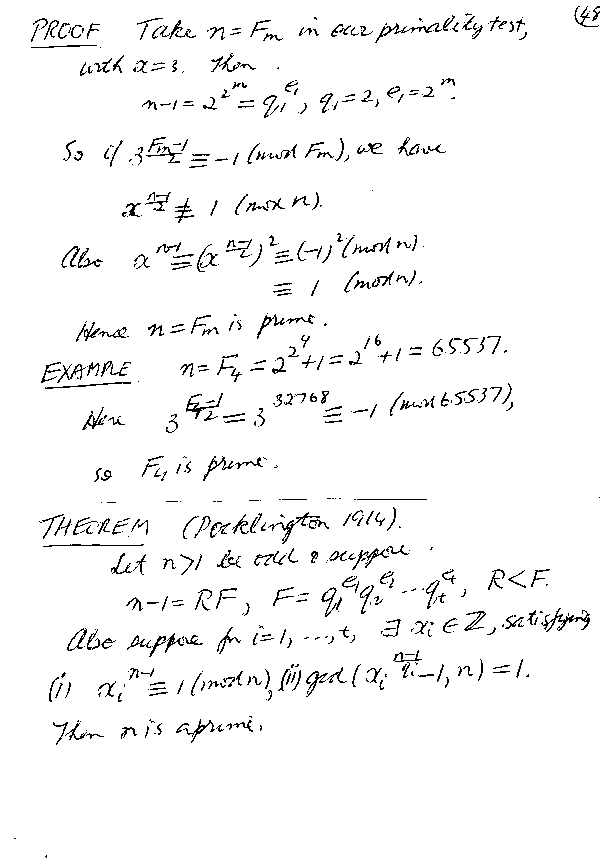 48
PROOF Take n = Fm in our primality test,
with x = 3. Then
n-1 = 2^{2^m} = q_1^{e_1}, q_1 = 2, e_1 = 2^m.
So if 3^{\frac{F_m-1}{2}} ≡ -1 (mod F_m), we have
x^{\frac{n-1}{2}} ≢ 1 (mod n).
Also x^{n-1} ≡ (x^{\frac{n-1}{2}})^2 ≡ (-1)^2 (mod n).
≡ 1 (mod n).
Hence n = F_m is prime.
EXAMPLE n = F_4 = 2^{2^4}+1 = 2^{16}+1 = 65537.
Here 3^{\frac{F_4-1}{2}} = 3^{32768} ≡ -1 (mod 65537),
so F_4 is prime.
THEOREM (Pocklington 1914).
Let n>1 be odd & suppose
n-1 = RF, F = q_1^{e_1} q_2^{e_2} ... q_t^{e_t}, R<F.
Also suppose for i=1, ..., t, ∃ x_i ∈ ℤ, satisfying
(i) x_i^{n-1} ≡ 1 (mod n), (ii) gcd(x_i^{\frac{n-1}{q_i}}-1, n) = 1.
Then n is a prime.